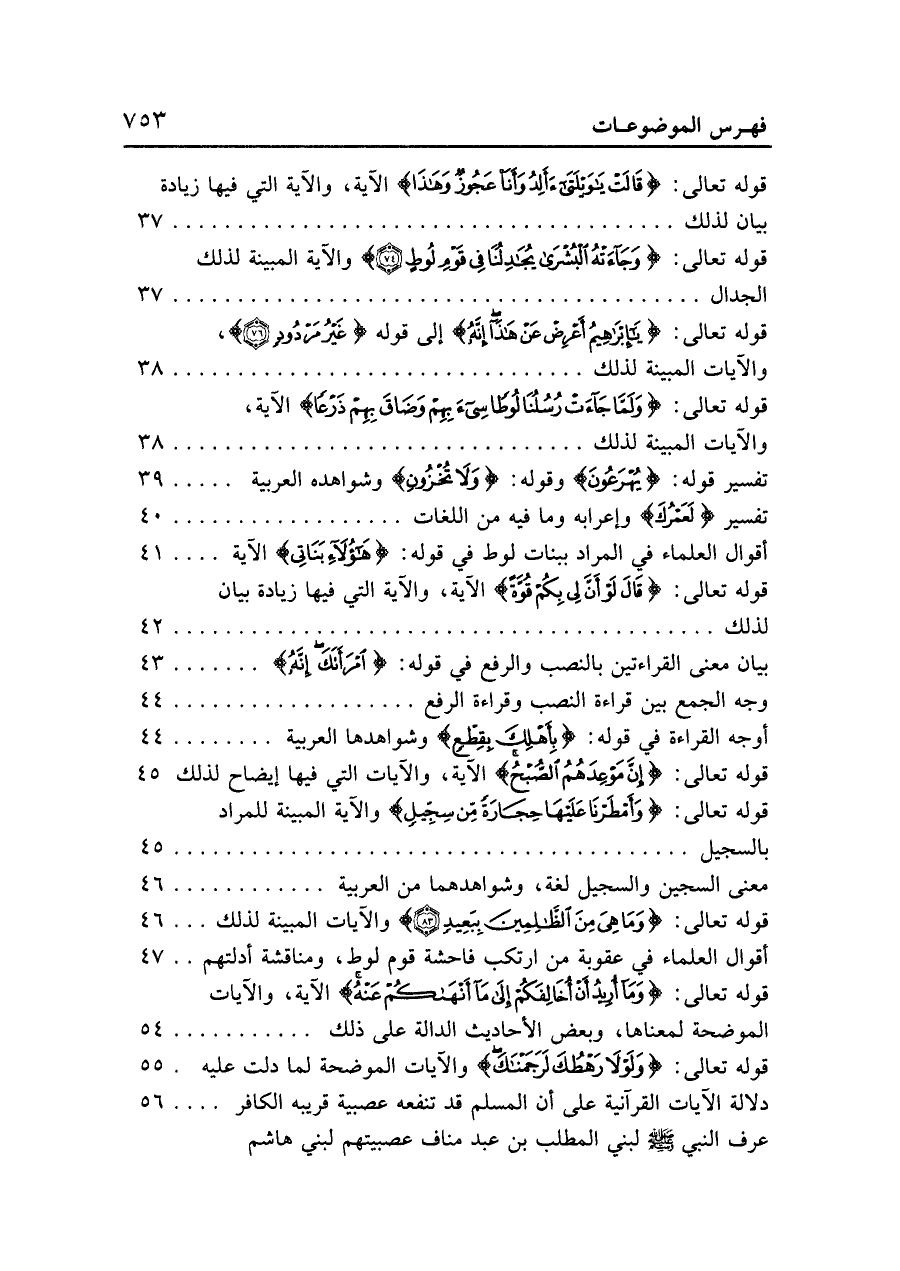 فهـرس الموضوعـات ٧٥٣
قوله تعالى: ﴿ قَالَتْ يَٰوَيْلَتَىٰٓ ءَأَلِدُ وَأَنَا۠ عَجُوزٌ وَهَٰذَا﴾ الآية، والآية التي فيها زيادة
بيان لذلك . . . . . . . . . . . . . . . . . . . . . . . . . . . . . . . . . . . . . . . ٣٧
قوله تعالى: ﴿ وَجَآءَتْهُ ٱلْبُشْرَىٰ يُجَٰدِلُنَا فِى قَوْمِ لُوطٍ ٧٤﴾ والآية المبينة لذلك
الجدال . . . . . . . . . . . . . . . . . . . . . . . . . . . . . . . . . . . . . . . . . ٣٧
قوله تعالى: ﴿ يَٰٓإِبْرَٰهِيمُ أَعْرِضْ عَنْ هَٰذَآ ۖ إِنَّهُۥ﴾ إلى قوله ﴿ غَيْرُ مَرْدُودٍ ٧٦﴾،
والآيات المبينة لذلك . . . . . . . . . . . . . . . . . . . . . . . . . . . . . . . . ٣٨
قوله تعالى: ﴿ وَلَمَّا جَآءَتْ رُسُلُنَا لُوطًا سِىٓءَ بِهِمْ وَضَاقَ بِهِمْ ذَرْعًا﴾ الآية،
والآيات المبينة لذلك . . . . . . . . . . . . . . . . . . . . . . . . . . . . . . . . ٣٨
تفسير قوله: ﴿ يُهْرَعُونَ﴾ وقوله: ﴿ وَلَا تُخْزُونِ﴾ وشواهده العربية . . . . . ٣٩
تفسير ﴿ لَعَمْرُكَ﴾ وإعرابه وما فيه من اللغات . . . . . . . . . . . . . . . . . . ٤٠
أقوال العلماء في المراد ببنات لوط في قوله: ﴿ هَٰٓؤُلَآءِ بَنَاتِى﴾ الآية . . . . ٤١
قوله تعالى: ﴿ قَالَ لَوْ أَنَّ لِى بِكُمْ قُوَّةً﴾ الآية، والآية التي فيها زيادة بيان
لذلك . . . . . . . . . . . . . . . . . . . . . . . . . . . . . . . . . . . . . . . . . . ٤٢
بيان معنى القراءتين بالنصب والرفع في قوله: ﴿ ٱمْرَأَتَكَ ۖ إِنَّهُۥ﴾ . . . . . . . ٤٣
وجه الجمع بين قراءة النصب وقراءة الرفع . . . . . . . . . . . . . . . . . . . ٤٤
أوجه القراءة في قوله: ﴿ بِأَهْلِكَ بِقِطْعٍ﴾ وشواهدها العربية . . . . . . . . ٤٤
قوله تعالى: ﴿ إِنَّ مَوْعِدَهُمُ ٱلصُّبْحُ ۚ﴾ الآية، والآيات التي فيها إيضاح لذلك ٤٥
قوله تعالى: ﴿ وَأَمْطَرْنَا عَلَيْهَا حِجَارَةً مِّن سِجِّيلٍ﴾ والآية المبينة للمراد
بالسجيل . . . . . . . . . . . . . . . . . . . . . . . . . . . . . . . . . . . . . . . . ٤٥
معنى السجين والسجيل لغة، وشواهدهما من العربية . . . . . . . . . . . . ٤٦
قوله تعالى: ﴿ وَمَا هِىَ مِنَ ٱلظَّٰلِمِينَ بِبَعِيدٍ ٨٣﴾ والآيات المبينة لذلك . . . ٤٦
أقوال العلماء في عقوبة من ارتكب فاحشة قوم لوط، ومناقشة أدلتهم . . ٤٧
قوله تعالى: ﴿ وَمَآ أُرِيدُ أَنْ أُخَالِفَكُمْ إِلَىٰ مَآ أَنْهَىٰكُمْ عَنْهُ ۚ﴾ الآية، والآيات
الموضحة لمعناها، وبعض الأحاديث الدالة على ذلك . . . . . . . . . . . ٥٤
قوله تعالى: ﴿ وَلَوْلَا رَهْطُكَ لَرَجَمْنَٰكَ ۖ﴾ والآيات الموضحة لما دلت عليه . ٥٥
دلالة الآيات القرآنية على أن المسلم قد تنفعه عصبية قريبه الكافر . . . . ٥٦
عرف النبي ﷺ لبني المطلب بن عبد مناف عصبيتهم لبني هاشم